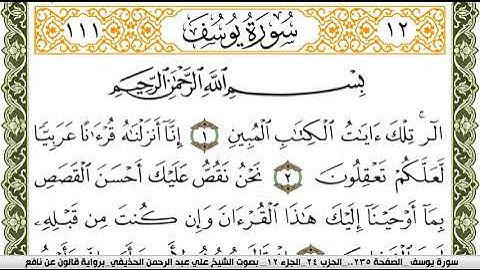 ١٢ سُورَةُ يُوسُفَ ١١١
بِسْمِ اللَّهِ الرَّحْمَٰنِ الرَّحِيمِ
الٓر۪ تِلْكَ ءَايَٰتُ الْكِتَٰبِ الْمُبِينِ ١ إِنَّا أَنزَلْنَٰهُ قُرْءَٰناً عَرَبِيّاً
لَّعَلَّكُمْ تَعْقِلُونَ ٢ نَحْنُ نَقُصُّ عَلَيْكَ أَحْسَنَ الْقَصَصِ
بِمَا أَوْحَيْنَا إِلَيْكَ هَٰذَا الْقُرْءَانَ وَإِن كُنتَ مِن قَبْلِهِ
سورة يوسف _الصفحة ٢٣٥.._ الحزب ٢٤_الجزء ١٢ _ بصوت الشيخ علي عبد الرحمن الحذيفي_ برواية قالون عن نافع